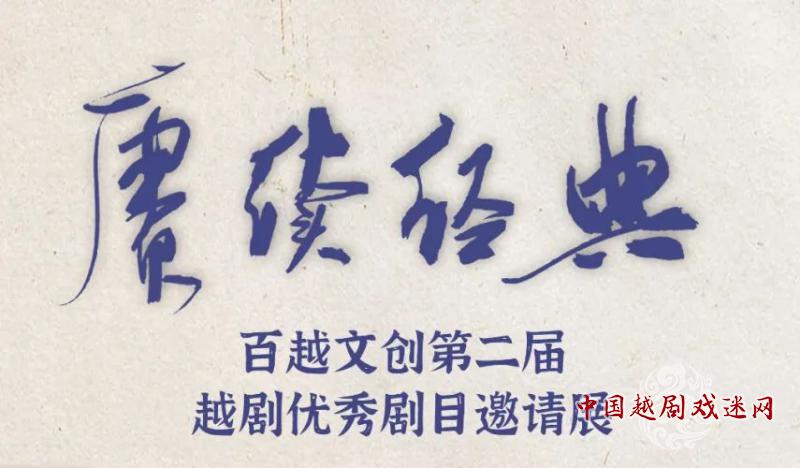 赓续经典
百越文创第二届
越剧优秀剧目邀请展
中国越剧戏迷网